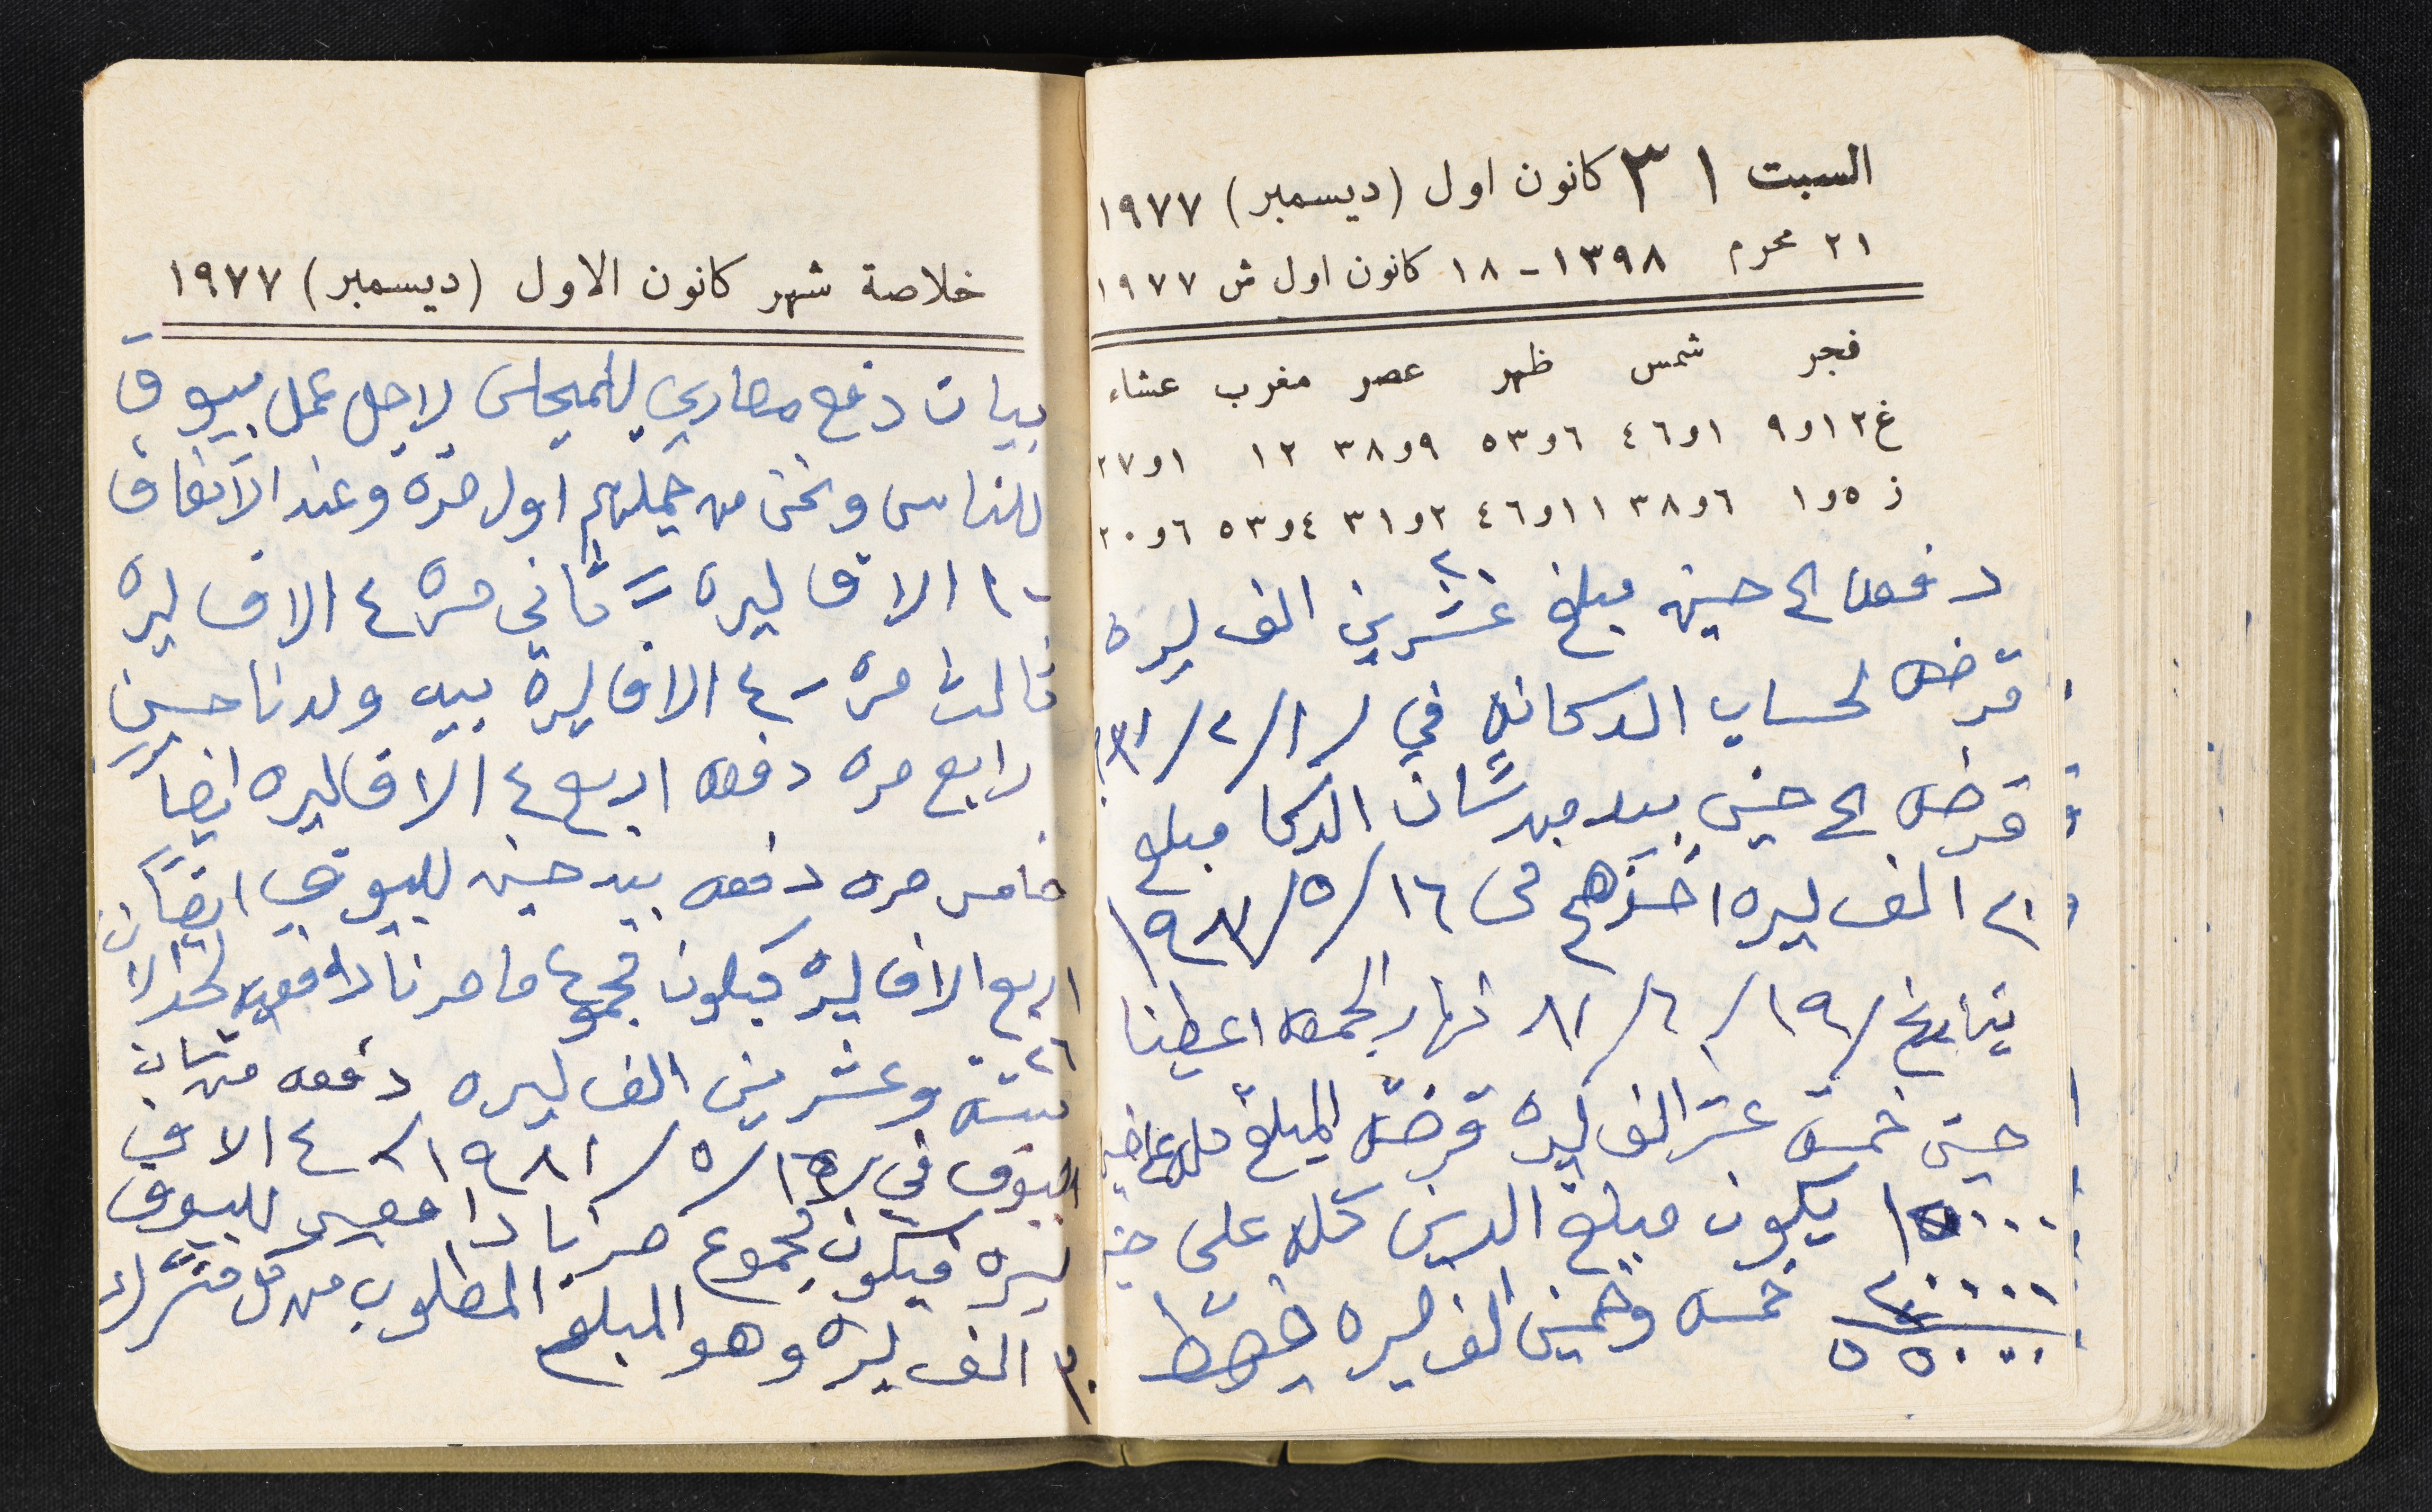 السبت ٣١ كانون اول (ديسمبر) ١٩٧٧
٢١ محرم ١٣٩٨ - ١٨ كانون اول ش ١٩٧٧
فجر شمس ظهر عصر مغرب عشاء
غ ١٢و٩ ١و٤٦ ٦و٥٣ ٩و٣٨ ١٢ ١و٢٧
ز ٥و١ ٦و٣٨ ١١و٤٦ ٢و٣١ ٤و٥٣ ٦و٢٠
دفعنا الى حسين مبلغ عشرين الف ليره
قرضه لحساب الدكانه في ١/٢/
قرضه الى حسين بيد مبدشان الدكا مبلغ
٢٠ الف ليره اخذهم في ١٦/٥/١٩٨١
بتاريخ ١٩/٦/٨١ نهار الجمعه اعطينا
حسين خمسة عشر الف ليره قرضه المبلغ كله على
١٥٠٠٠ يكون مبلغ الدين كله على
٤٠٠٠٠ خمسه وخمسين الف ليره
٥٥٠٠٠
خلاصة شهر كانون الاول (ديسمبر) ١٩٧٧
بيان دفع مصاري للمجلس لاجل عمل بيوت
للناس ونحن من جملتهم اول مرة وعند الاتفاق
١٠ الاف ليره = ثاني مره ٤ الاف ليره
ثالث مره - ٤ الاف ليرة بيد ولدنا حسين
رابع مره دفعه اربع ٤ الاف ليره ايضاً
خامس مره دفعه بيد حسين للبيوت ايضاً
اربع الاف ليره فيكون مجموع ما صرنا دافعين لحد الان
٢٦ ستة وعشرين الف ليره دفعه منشان
البيوت في ١٥/٥/١٩٨١ ٤ الاف
ليره فيكون مجموع صرنا دافعين للبيوت
٣٠ الف ليره وهو المبلغ المطلوب من كل مشترك